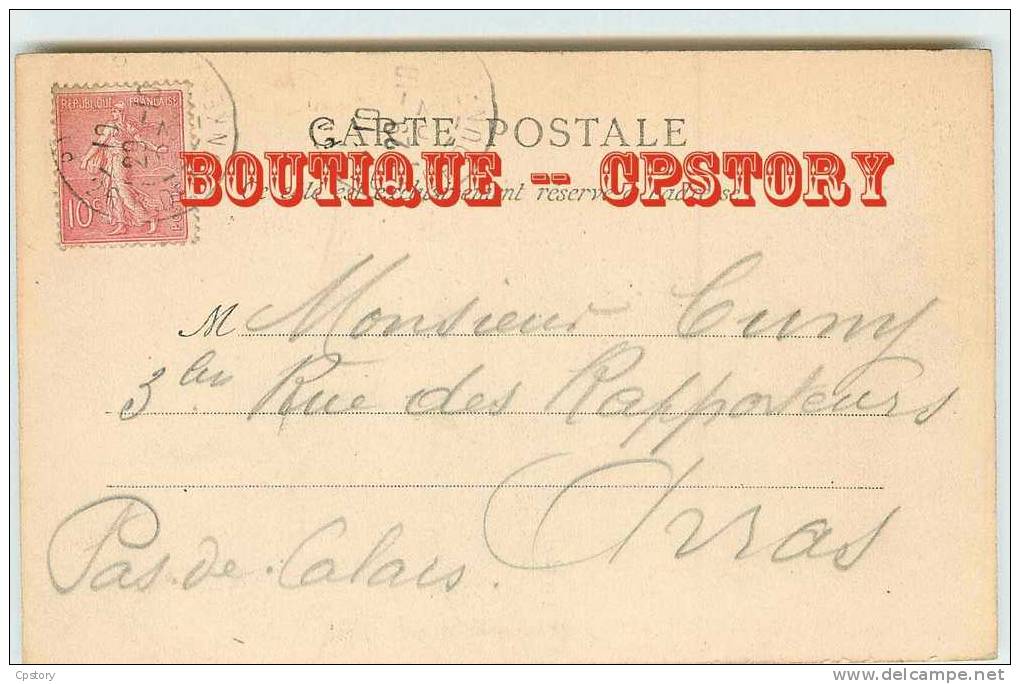 RÉPUBLIQUE FRANÇAISE
10c
CARTE POSTALE
BOUTIQUE -- CPSTORY
est exclusivement réservé à l'adresse.
M Monsieur Cuny
3 bis Rue des Rapporteurs
Arras
Pas-de-Calais.
Cpstory
delcampe.net